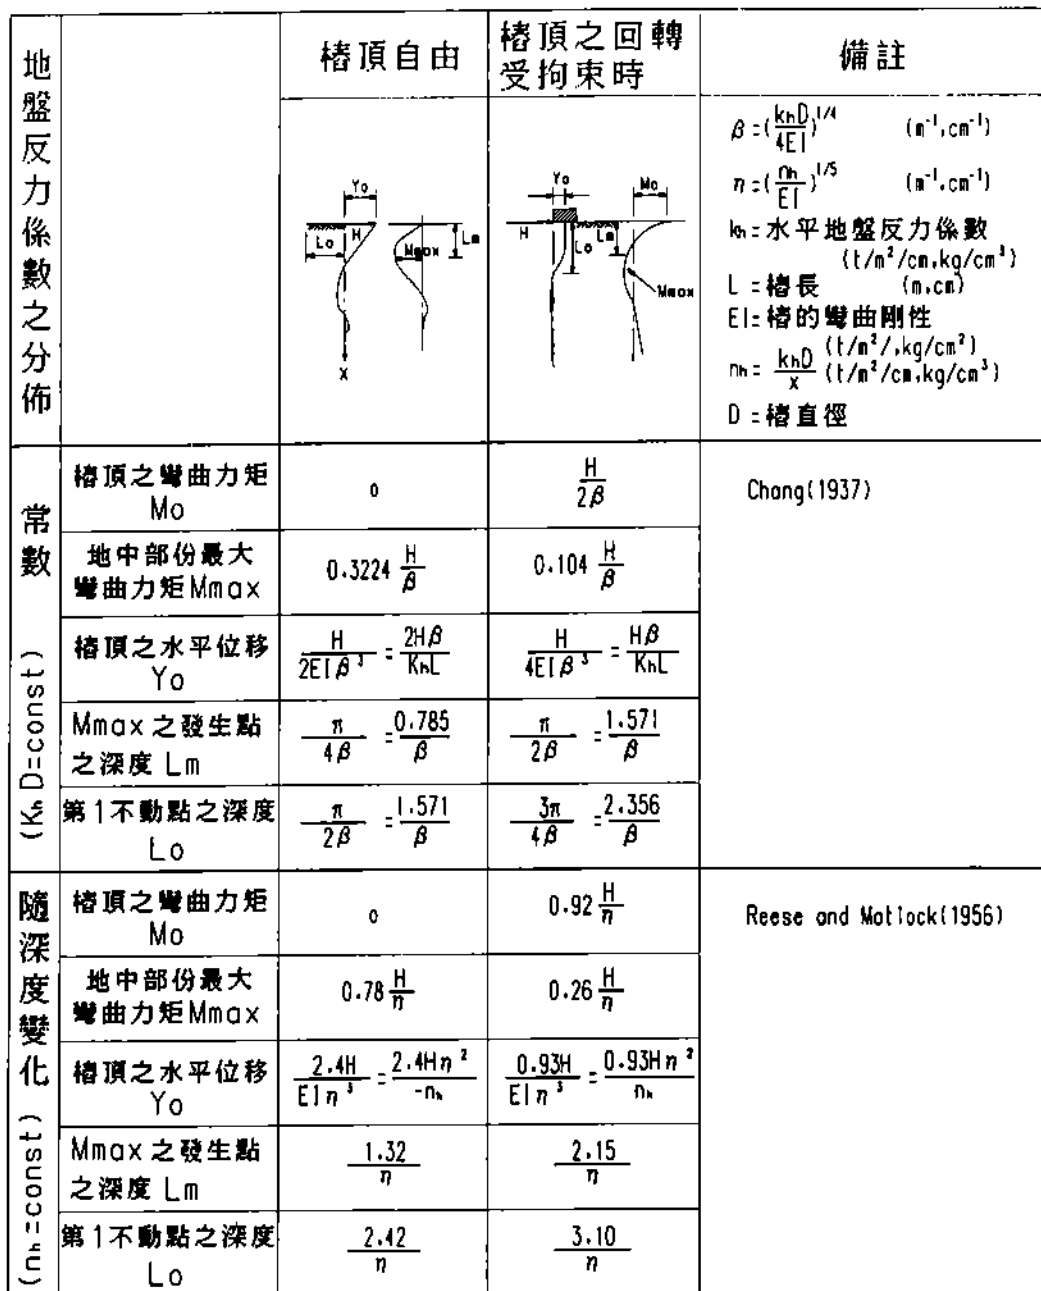 地盤反力係數之分佈
樁頂自由
樁頂之回轉
受拘束時
備註
Yo
H
Lo
Mmax
Lm
X
Yo
Mo
H
Lo
Lm
Mmax
β=(khD/4EI)^1/4 (m⁻¹,cm⁻¹)
η=(nh/EI)^1/5 (m⁻¹,cm⁻¹)
kh=水平地盤反力係數
(t/m²/cm,kg/cm³)
L=樁長 (m,cm)
EI=樁的彎曲剛性
(t/m²/,kg/cm²)
nh= khD/x (t/m²/cm,kg/cm³)
D=樁直徑
常數 (KhD=const)
樁頂之彎曲力矩
Mo
0
H/2β
Chang(1937)
地中部份最大
彎曲力矩Mmax
0.3224 H/β
0.104 H/β
樁頂之水平位移
Yo
H/2EIβ³ = 2Hβ/KhL
H/4EIβ³ = Hβ/KhL
Mmax之發生點
之深度 Lm
π/4β = 0.785/β
π/2β = 1.571/β
第1不動點之深度
Lo
π/2β = 1.571/β
3π/4β = 2.356/β
隨深度變化 (nh=const)
樁頂之彎曲力矩
Mo
0
0.92 H/η
Reese and Matlock(1956)
地中部份最大
彎曲力矩Mmax
0.78 H/η
0.26 H/η
樁頂之水平位移
Yo
2.4H/EIη³ = 2.4Hη²/-nh
0.93H/EIη³ = 0.93Hη²/nh
Mmax之發生點
之深度 Lm
1.32/η
2.15/η
第1不動點之深度
Lo
2.42/η
3.10/η